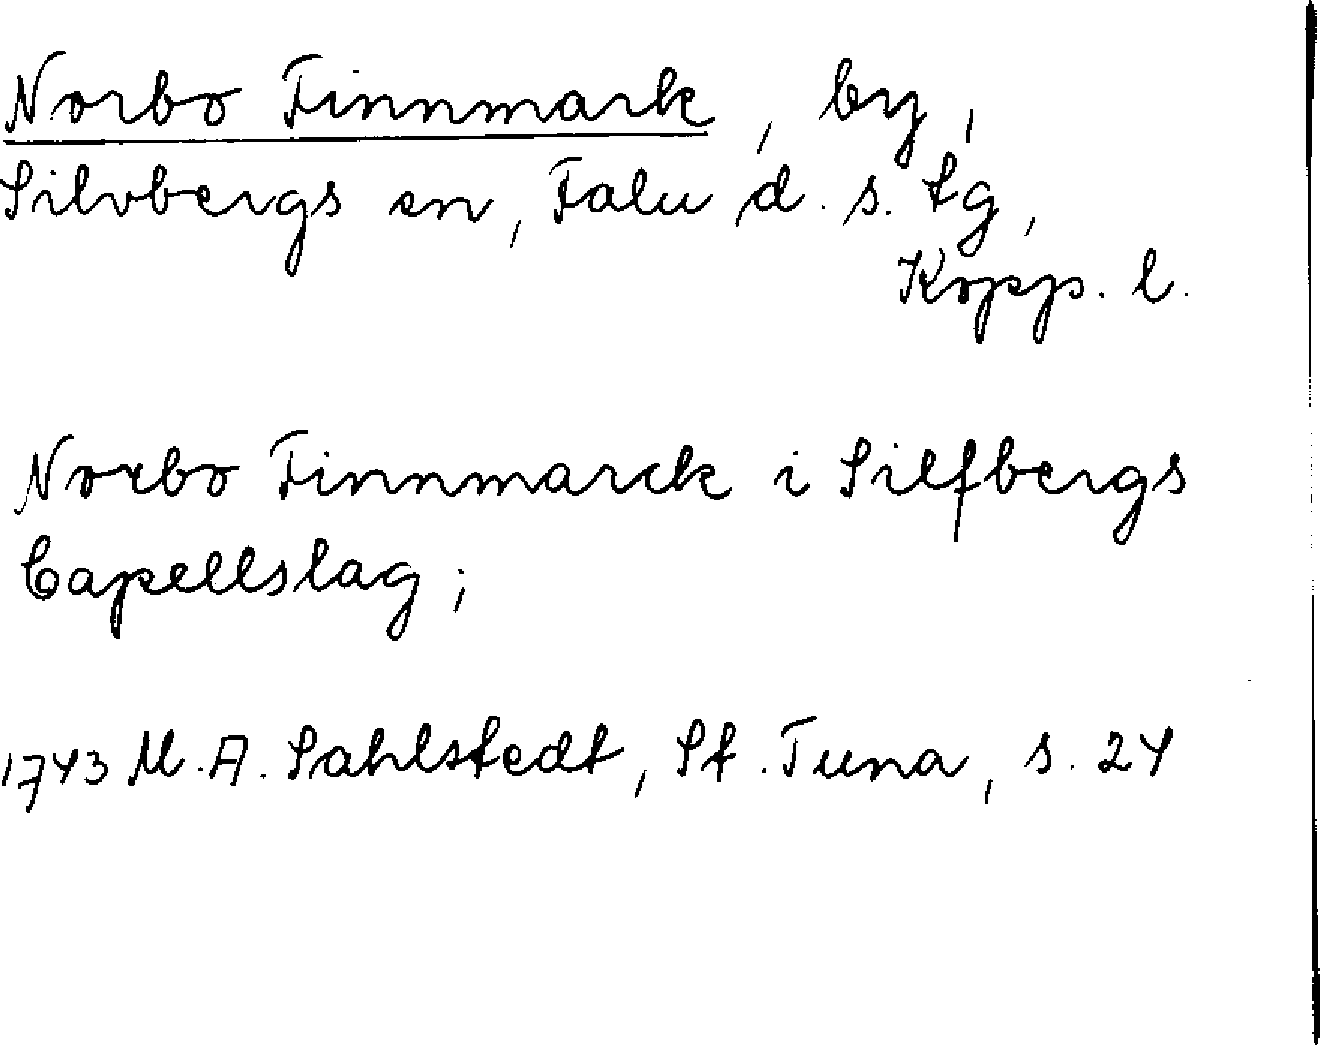 Norbo Finnmark, by,
Silvbergs sn, Falu d. s. tg,
Kopp. l.
Norbo Finnmarck i Silfbergs
Capellslag;
1743 M. A. Sahlstedt, St. Tuna, s. 24